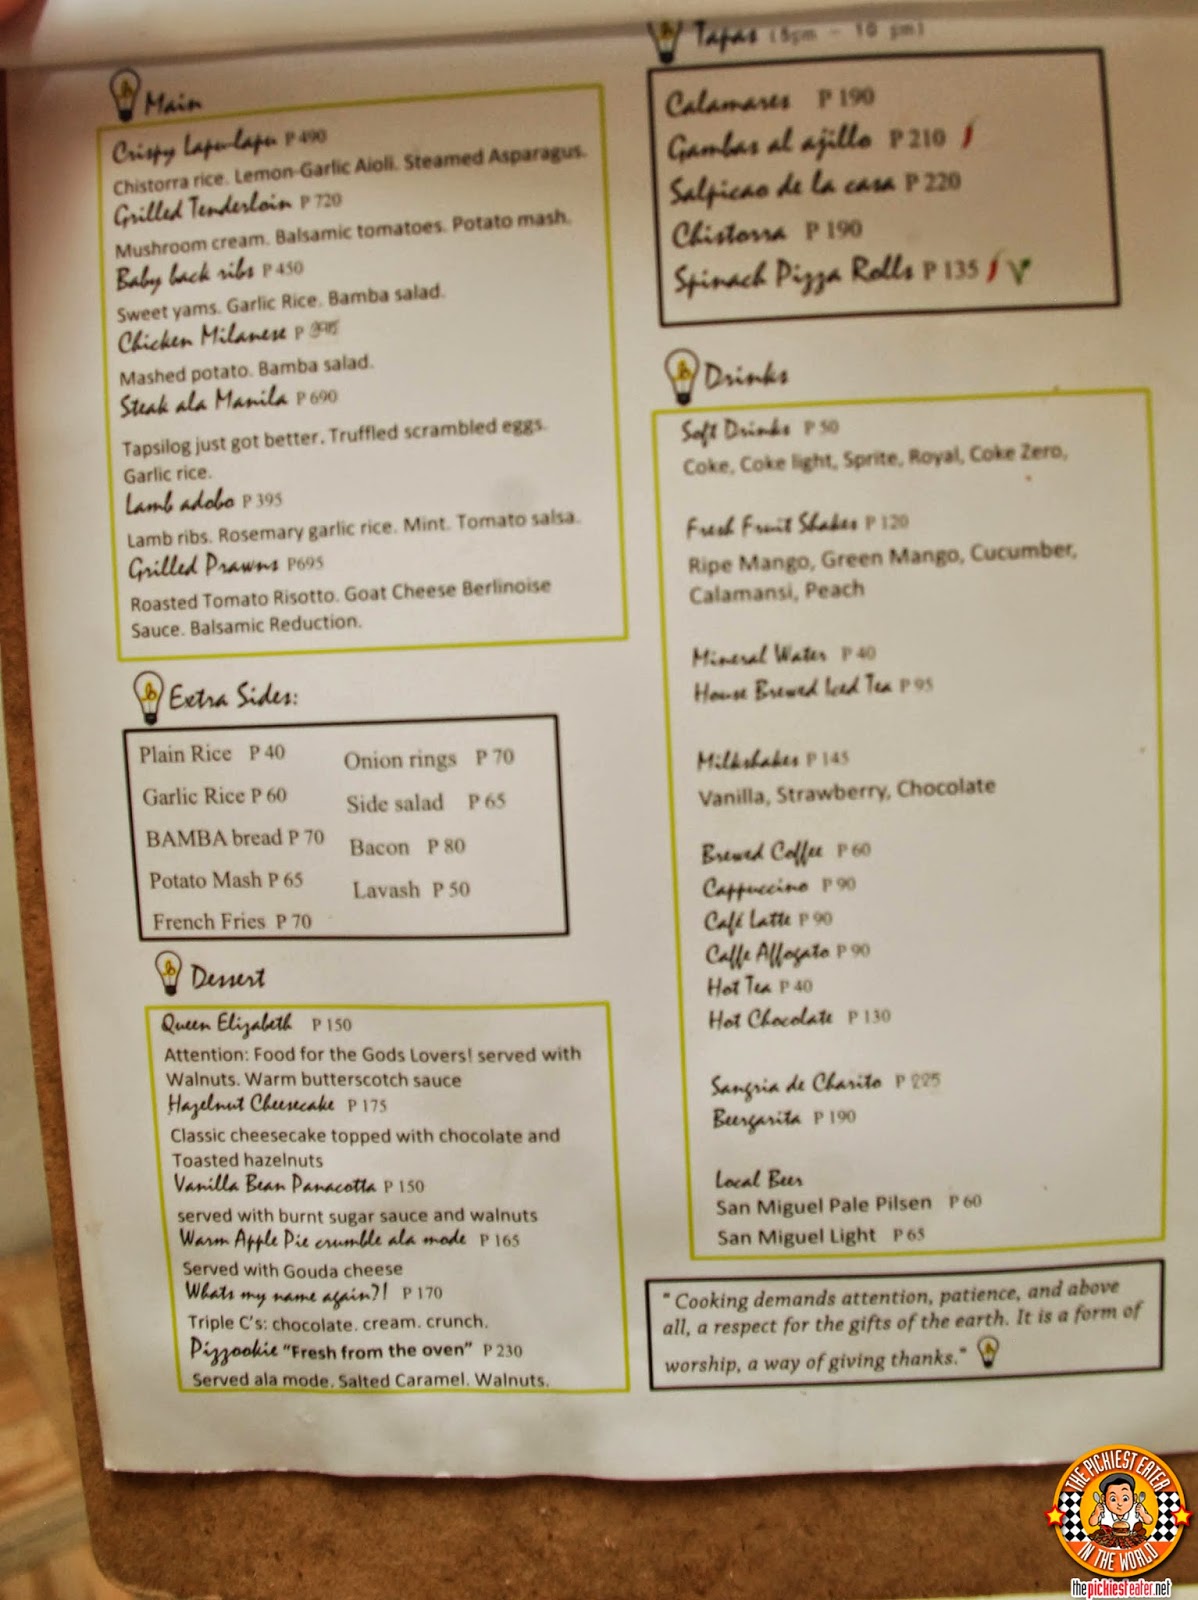 Main
Crispy Lapu-lapu P 490
Chistorra rice. Lemon-Garlic Aioli. Steamed Asparagus.
Grilled Tenderloin P 720
Mushroom cream. Balsamic tomatoes. Potato mash.
Baby back ribs P 450
Sweet yams. Garlic Rice. Bamba salad.
Chicken Milanese P
Mashed potato. Bamba salad.
Steak ala Manila P 690
Tapsilog just got better. Truffled scrambled eggs.
Garlic rice.
Lamb adobo P 395
Lamb ribs. Rosemary garlic rice. Mint. Tomato salsa.
Grilled Prawns P695
Roasted Tomato Risotto. Goat Cheese Berlinoise
Sauce. Balsamic Reduction.
Extra Sides:
Plain Rice P 40
Garlic Rice P 60
BAMBA bread P 70
Potato Mash P 65
French Fries P 70
Onion rings P 70
Side salad P 65
Bacon P 80
Lavash P 50
Dessert
Queen Elizabeth P 150
Attention: Food for the Gods Lovers! served with
Walnuts. Warm butterscotch sauce
Hazelnut Cheesecake P 175
Classic cheesecake topped with chocolate and
Toasted hazelnuts
Vanilla Bean Panacotta P 150
served with burnt sugar sauce and walnuts
Warm Apple Pie crumble ala mode P 165
Served with Gouda cheese
Whats my name again?! P 170
Triple C's: chocolate. cream. crunch.
Pizzookie "Fresh from the oven" P 230
Served ala mode. Salted Caramel. Walnuts.
Tapas (5pm - 10 pm)
Calamares P 190
Gambas al ajillo P 210
Salpicao de la casa P 220
Chistorra P 190
Spinach Pizza Rolls P 135
Drinks
Soft Drinks P 50
Coke, Coke light, Sprite, Royal, Coke Zero,
Fresh Fruit Shakes P 120
Ripe Mango, Green Mango, Cucumber,
Calamansi, Peach
Mineral Water P 40
House Brewed Iced Tea P 95
Milkshakes P 145
Vanilla, Strawberry, Chocolate
Brewed Coffee P 60
Cappuccino P 90
Café Latte P 90
Caffe Affogato P 90
Hot Tea P 40
Hot Chocolate P 130
Sangria de Charito P 225
Beergarita P 190
Local Beer
San Miguel Pale Pilsen P 60
San Miguel Light P 65
" Cooking demands attention, patience, and above
all, a respect for the gifts of the earth. It is a form of
worship, a way of giving thanks."
THE PICKIEST EATER
IN THE WORLD
thepickiesteater.net